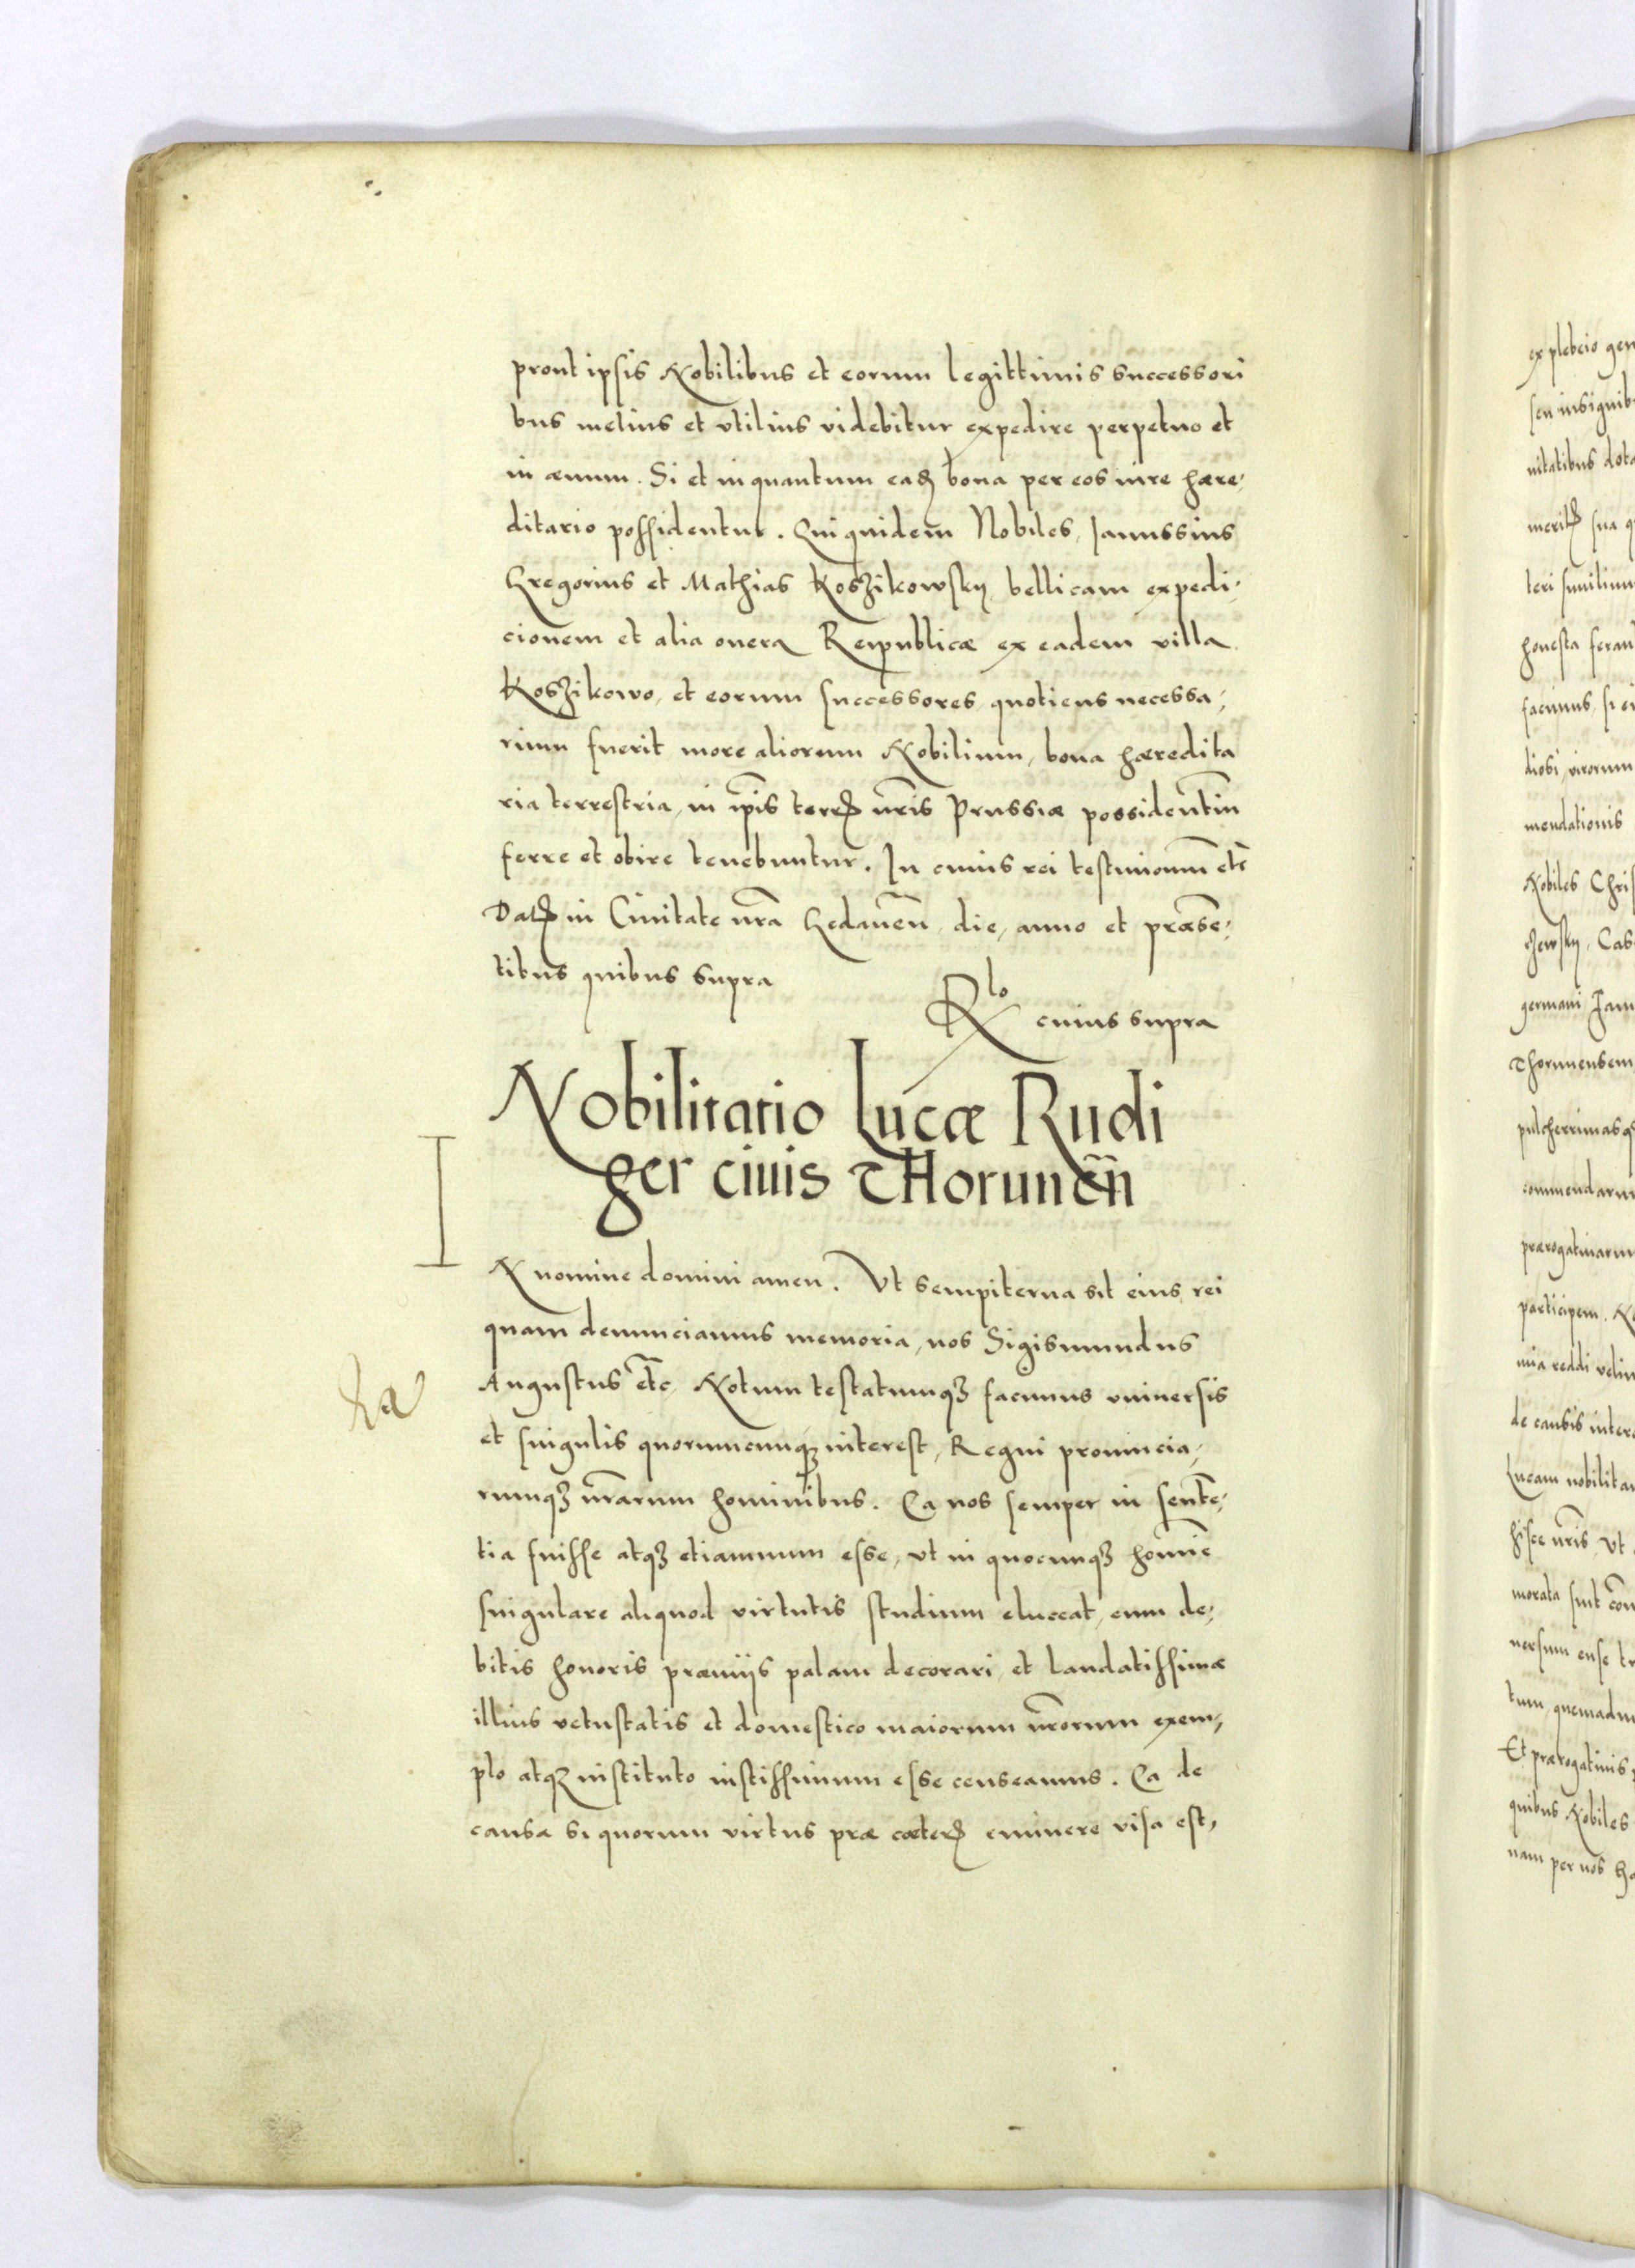 prout ipsis Nobilibus et eorum legittimis successori
bus melius et vtilius videbitur expedire perpetuo et
in æuum. Si et inquantum eadꝫ bona per eos iure hære,
ditario possidentur. Qui quidem Nobiles, Janussius
Gregorius et Mathias Koszikowsky, bellicam expedi,
cionem et alia onera Reipublicæ ex eadem villa
Koszikowo, et eorum successores quotiens necessa,
rium fuerit more aliorum Nobilium, bona hæredita
ria terrestria, in ip̄is terrꝭ nr̄is Prussiæ possidentiū
ferre et obire tenebuntur. In cuius rei testimoniū etc̄
Datꝭ in Ciuitate nr̄a Gedanēn, die, anno et præsē,
tibus quibus supra
Rlo cuius supra
Nobilitatio Lucæ Rudi
ger ciuis Thorunēn̄
I
N nomine domini amen. Vt sempiterna sit eius rei
quam denunciamus memoria, nos Sigismundus
Augustus etc̄, Notum testatumqꝫ facimus vniuersis
et singulis quorumcunqꝫ interest, Regni prouincia,
rumqꝫ nr̄arum hominibus. Ea nos semper in sentē,
tia fuisse atqꝫ etiamnum esse, vt in quocunqꝫ homīe
singulare aliquod virtutis studium eluceat, eum de,
bitis honoris præmijs palam decorari et laudatissimæ
illius vetustatis et domestico maiorum nr̄orum exem,
plo atqꝫ instituto iustissimum esse censeamus. Ea de
causa si quorum virtus præ cæterꝭ eminere visa est,
ex plebeio gen
seu insignib
nitatibus dota
meritꝭ sua q
teri similium
honesta feran
facimus, si ei
diosi, virorum
mendationis
Nobiles Chris
germani Jan
Thorunensem
pulcherrimas q
commendarun
prærogatiuarum
participem. N
nia reddi velim
de causis inter
Lucam nobilitan
hisce nr̄is, Vt
morata sint
uersum ense tr
tum, quemadm
Et prærogatiuis p
quibus Nobiles
nam per nos